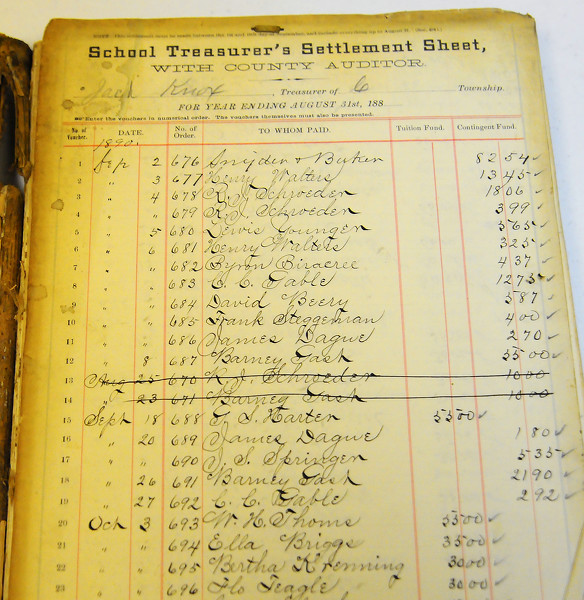 School Treasurer's Settlement Sheet,
WITH COUNTY AUDITOR.
Jack Knox, Treasurer of 6 Township.
FOR YEAR ENDING AUGUST 31st, 188
Enter the vouchers in numerical order. The vouchers themselves must also be presented.
No. of Voucher. DATE. No. of Order. TO WHOM PAID. Tuition Fund. Contingent Fund.
1890
1 Sep 2 676 Snyder & Buker 82 54
2 " 3 677 Henry Walters 13 45
3 " 4 678 R. J. Schroeder 18 06
4 " " 679 R. J. Schroeder 3 99
5 " 5 680 Lewis Younger 5 65
6 " 6 681 Henry Walters 3 25
7 " " 682 Byron Biracree 4 37
8 " " 683 C. C. Gable 12 75
9 " " 684 David Beery 5 87
10 " " 685 Frank Steggeman 4 00
11 " " 686 James Dague 2 70
12 " 8 687 Barney Gash 55 00
13 Aug 25 670 R. J. Schroeder 10 00
14 " 23 671 Barney Gash 10 00
15 Sept 18 688 G. S. Harter 55 00
16 " 20 689 James Dague 1 80
17 " 690 J. S. Springer 5 35
18 " 26 691 Barney Gash 21 90
19 " 27 692 C. C. Gable 2 92
20 Oct 3 693 W. H. Thoms 55 00
21 " " 694 Ella Briggs 35 00
22 " " 695 Bertha Krenning 30 00
23 " " 696 Flo Teagle 30 00